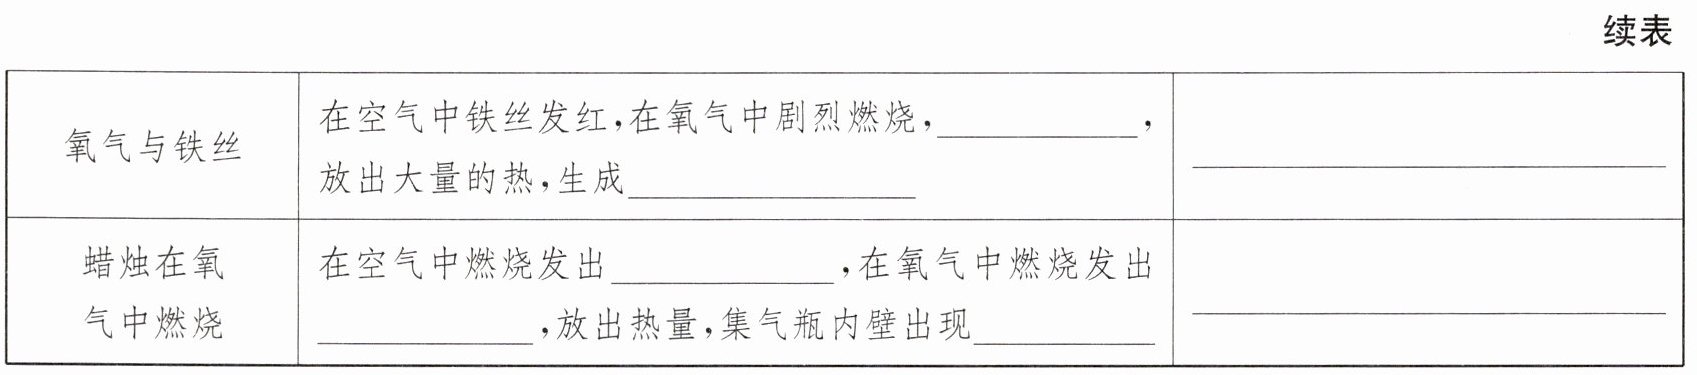 续表
氧气与铁丝
在空气中铁丝发红,在氧气中剧烈燃烧,____________,
放出大量的热,生成____________
____________
蜡烛在氧
气中燃烧
在空气中燃烧发出____________,在氧气中燃烧发出
____________,放出热量,集气瓶内壁出现____________
____________